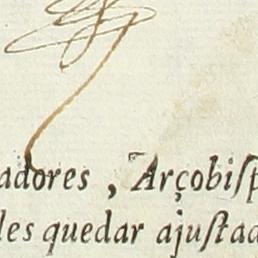 adores, Arçobiſp
les quedar ajuſtad